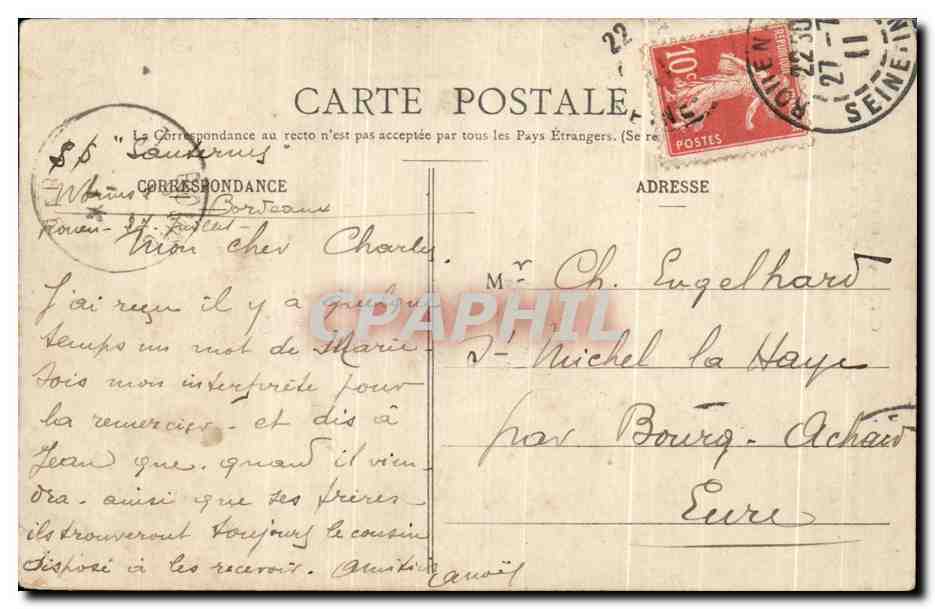 CARTE POSTALE
La Correspondance au recto n'est pas acceptée par tous les Pays Étrangers. (Se re
S/S "Sauternes"
CORRESPONDANCE
Worms & Bordeaux
Rouen - 27 Juillet -
Mon cher Charles,
J'ai reçu il y a quelque
temps un mot de Marie -
Sois mon interprête pour
la remercier - et dis à
Jean que quand il vien-
dra - ainsi que ses frères
ils trouveront toujours le cousin
disposé à les recevoir. Amitiés
ADRESSE
Mr Ch. Engelhard
St Michel la Haye
par Bourg-Achard
Eure
10c
POSTES
22
ROUEN
22 30
27 - 7
11
SEINE-IN
CPAPHIL